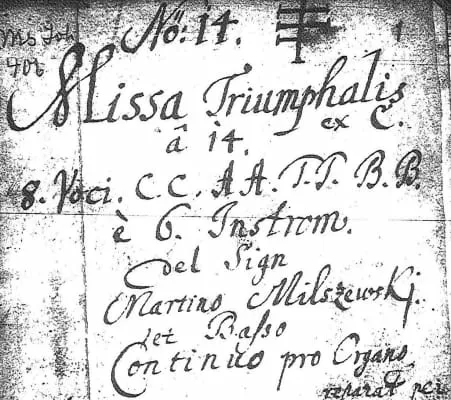 Nö: 14. 1
Ms Joh
406
Missa Triumphalis
ex C.
â 14.
8. Voci. C. C. A A. T. T. B. B.
è 6. Instrom.
Del Sign
Martino Milszewskj.
et Basso
Continuo pro Organo
reparat per